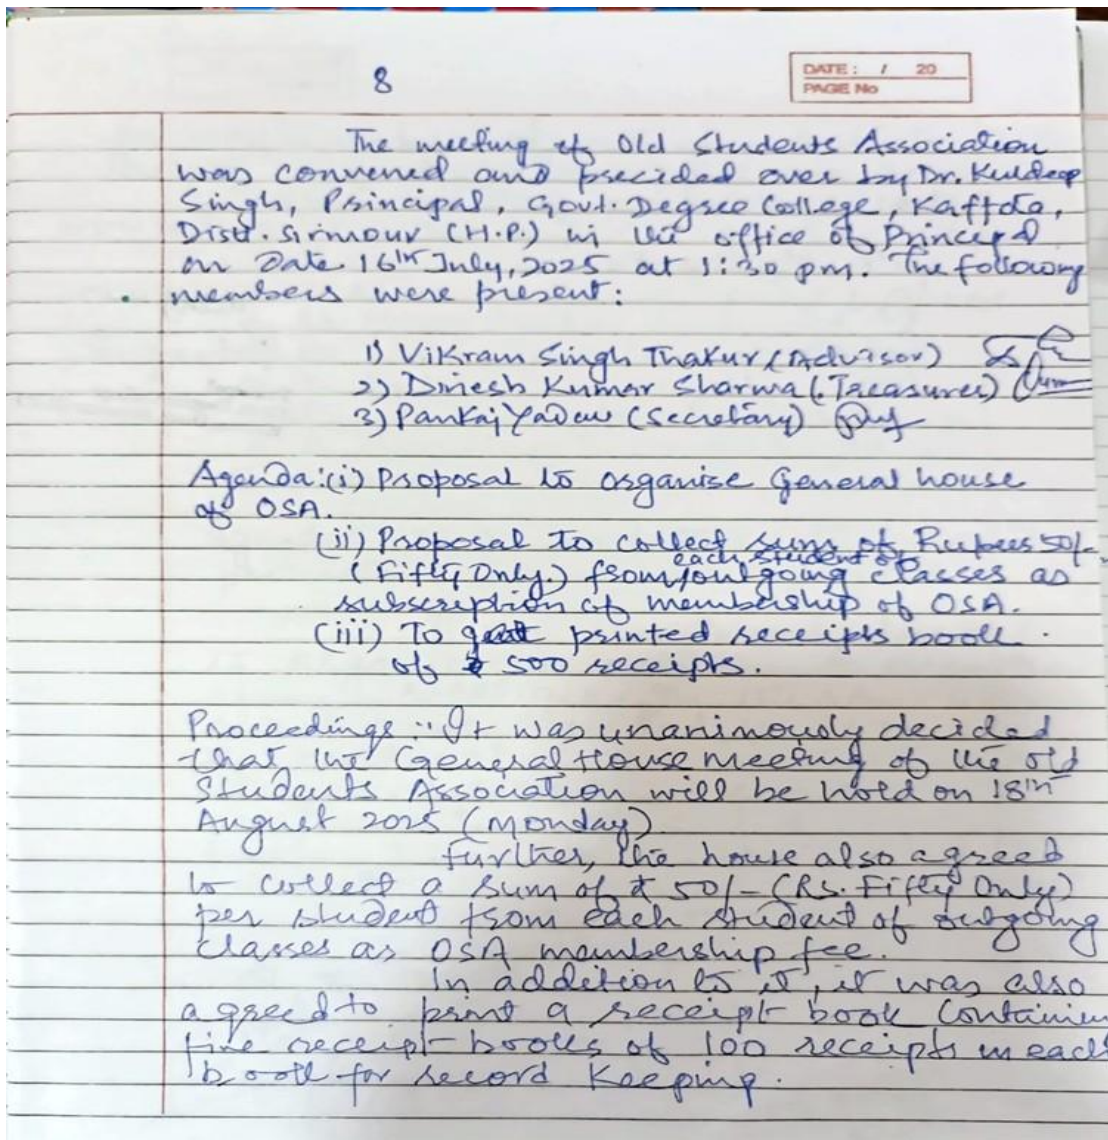 8
DATE : / 20
PAGE No
The meeting of Old Students Association
was convened and precided over by Dr. Kuldeep
Singh, Principal, Govt. Degree College, Kaffota,
Distt. Sirmour (H.P.) in the office of Principal
on Date 16th July, 2025 at 1:30 pm. The following
members were present:
1) Vikram Singh Thakur (Advisor)
2) Dinesh Kumar Sharma (Treasurer)
3) Pankaj Yadav (Secretary)
Agenda: (i) Proposal to organise General house
of OSA.
(ii) Proposal to collect sum of Rupees 50/-
each student of
(Fifty Only.) from outgoing classes as
subscription of membership of OSA.
(iii) To get printed receipts book
of 500 receipts.
Proceedings :- It was unanimously decided
that the General House meeting of the old
Students Association will be hold on 18th
August 2025 (Monday)
further, the house also agreed
to collect a sum of ₹ 50/- (Rs. Fifty Only)
per student from each student of outgoing
classes as OSA membership fee.
In addition to it, it was also
agreed to print a receipt book Containin
five receipt books of 100 receipts in each
book for record keeping.